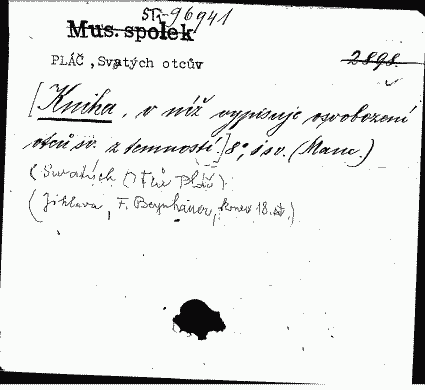 ST-96941
Mus. spolek
PLÁČ, Svatých otcův
2898.
[Kniha, v níž vypisuje osvobození
otců sv. z temností.] 8°, 1 sv. (Manc.)
(Swatých Otců Pláč)
(Jihlava, F. Beynhauer, konec 18. st.)